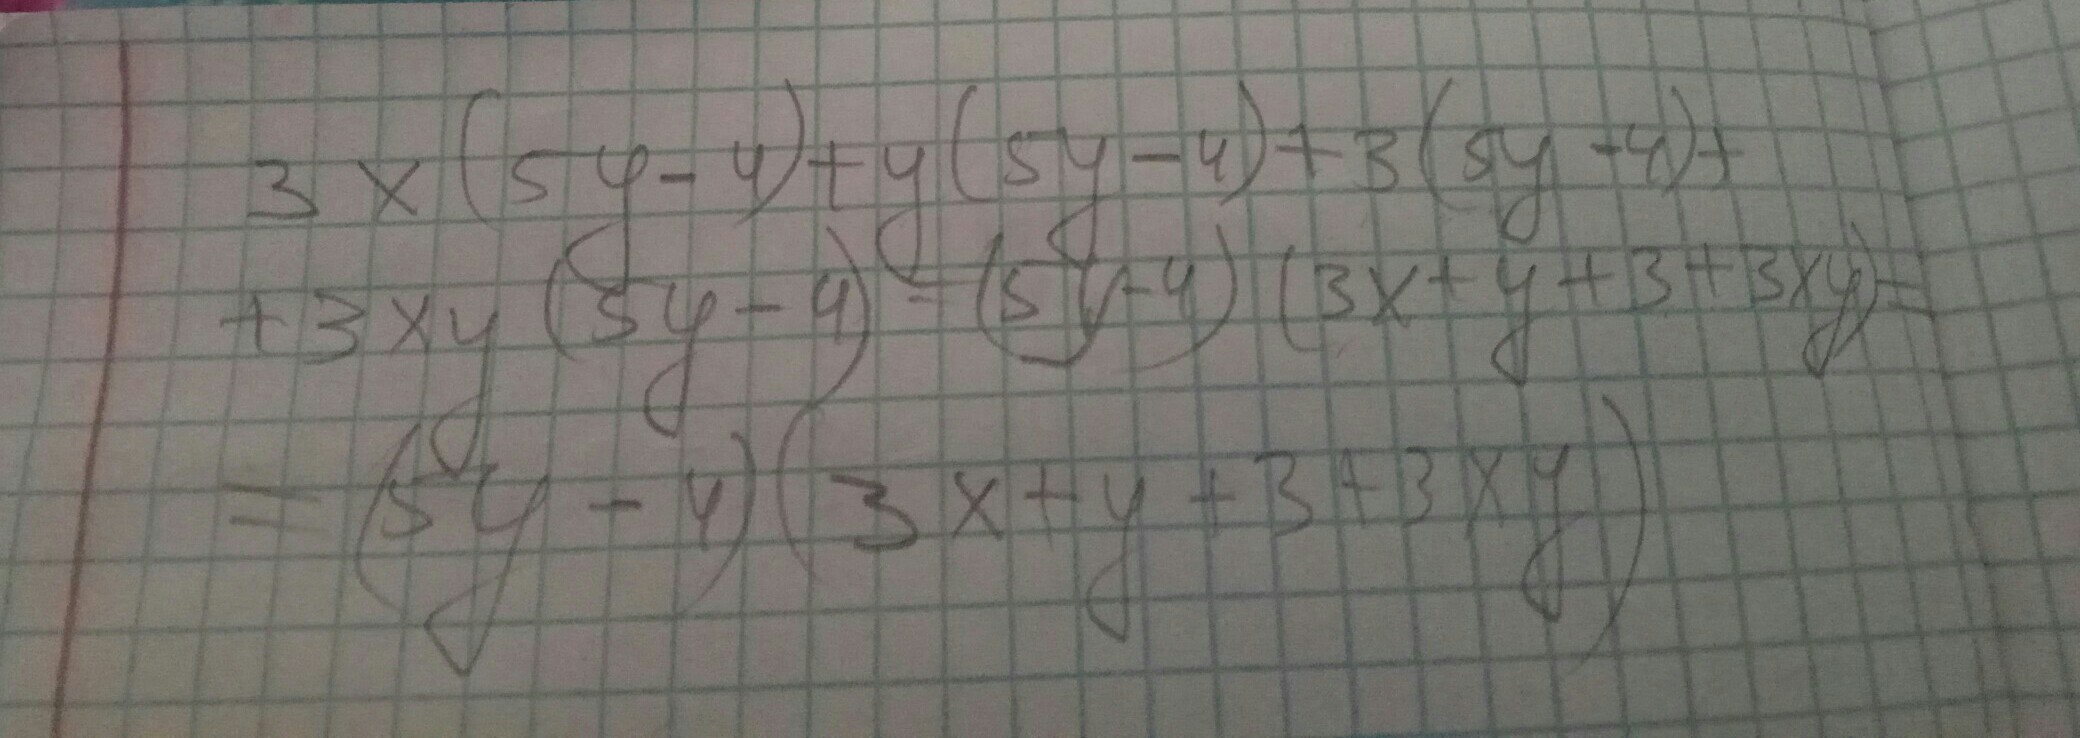 3x(5y-4)+y(5y-4)+3(5y-4)+
+3xy(5y-4)=(5y-4)(3x+y+3+3xy)=
=(5y-4)(3x+y+3+3xy)